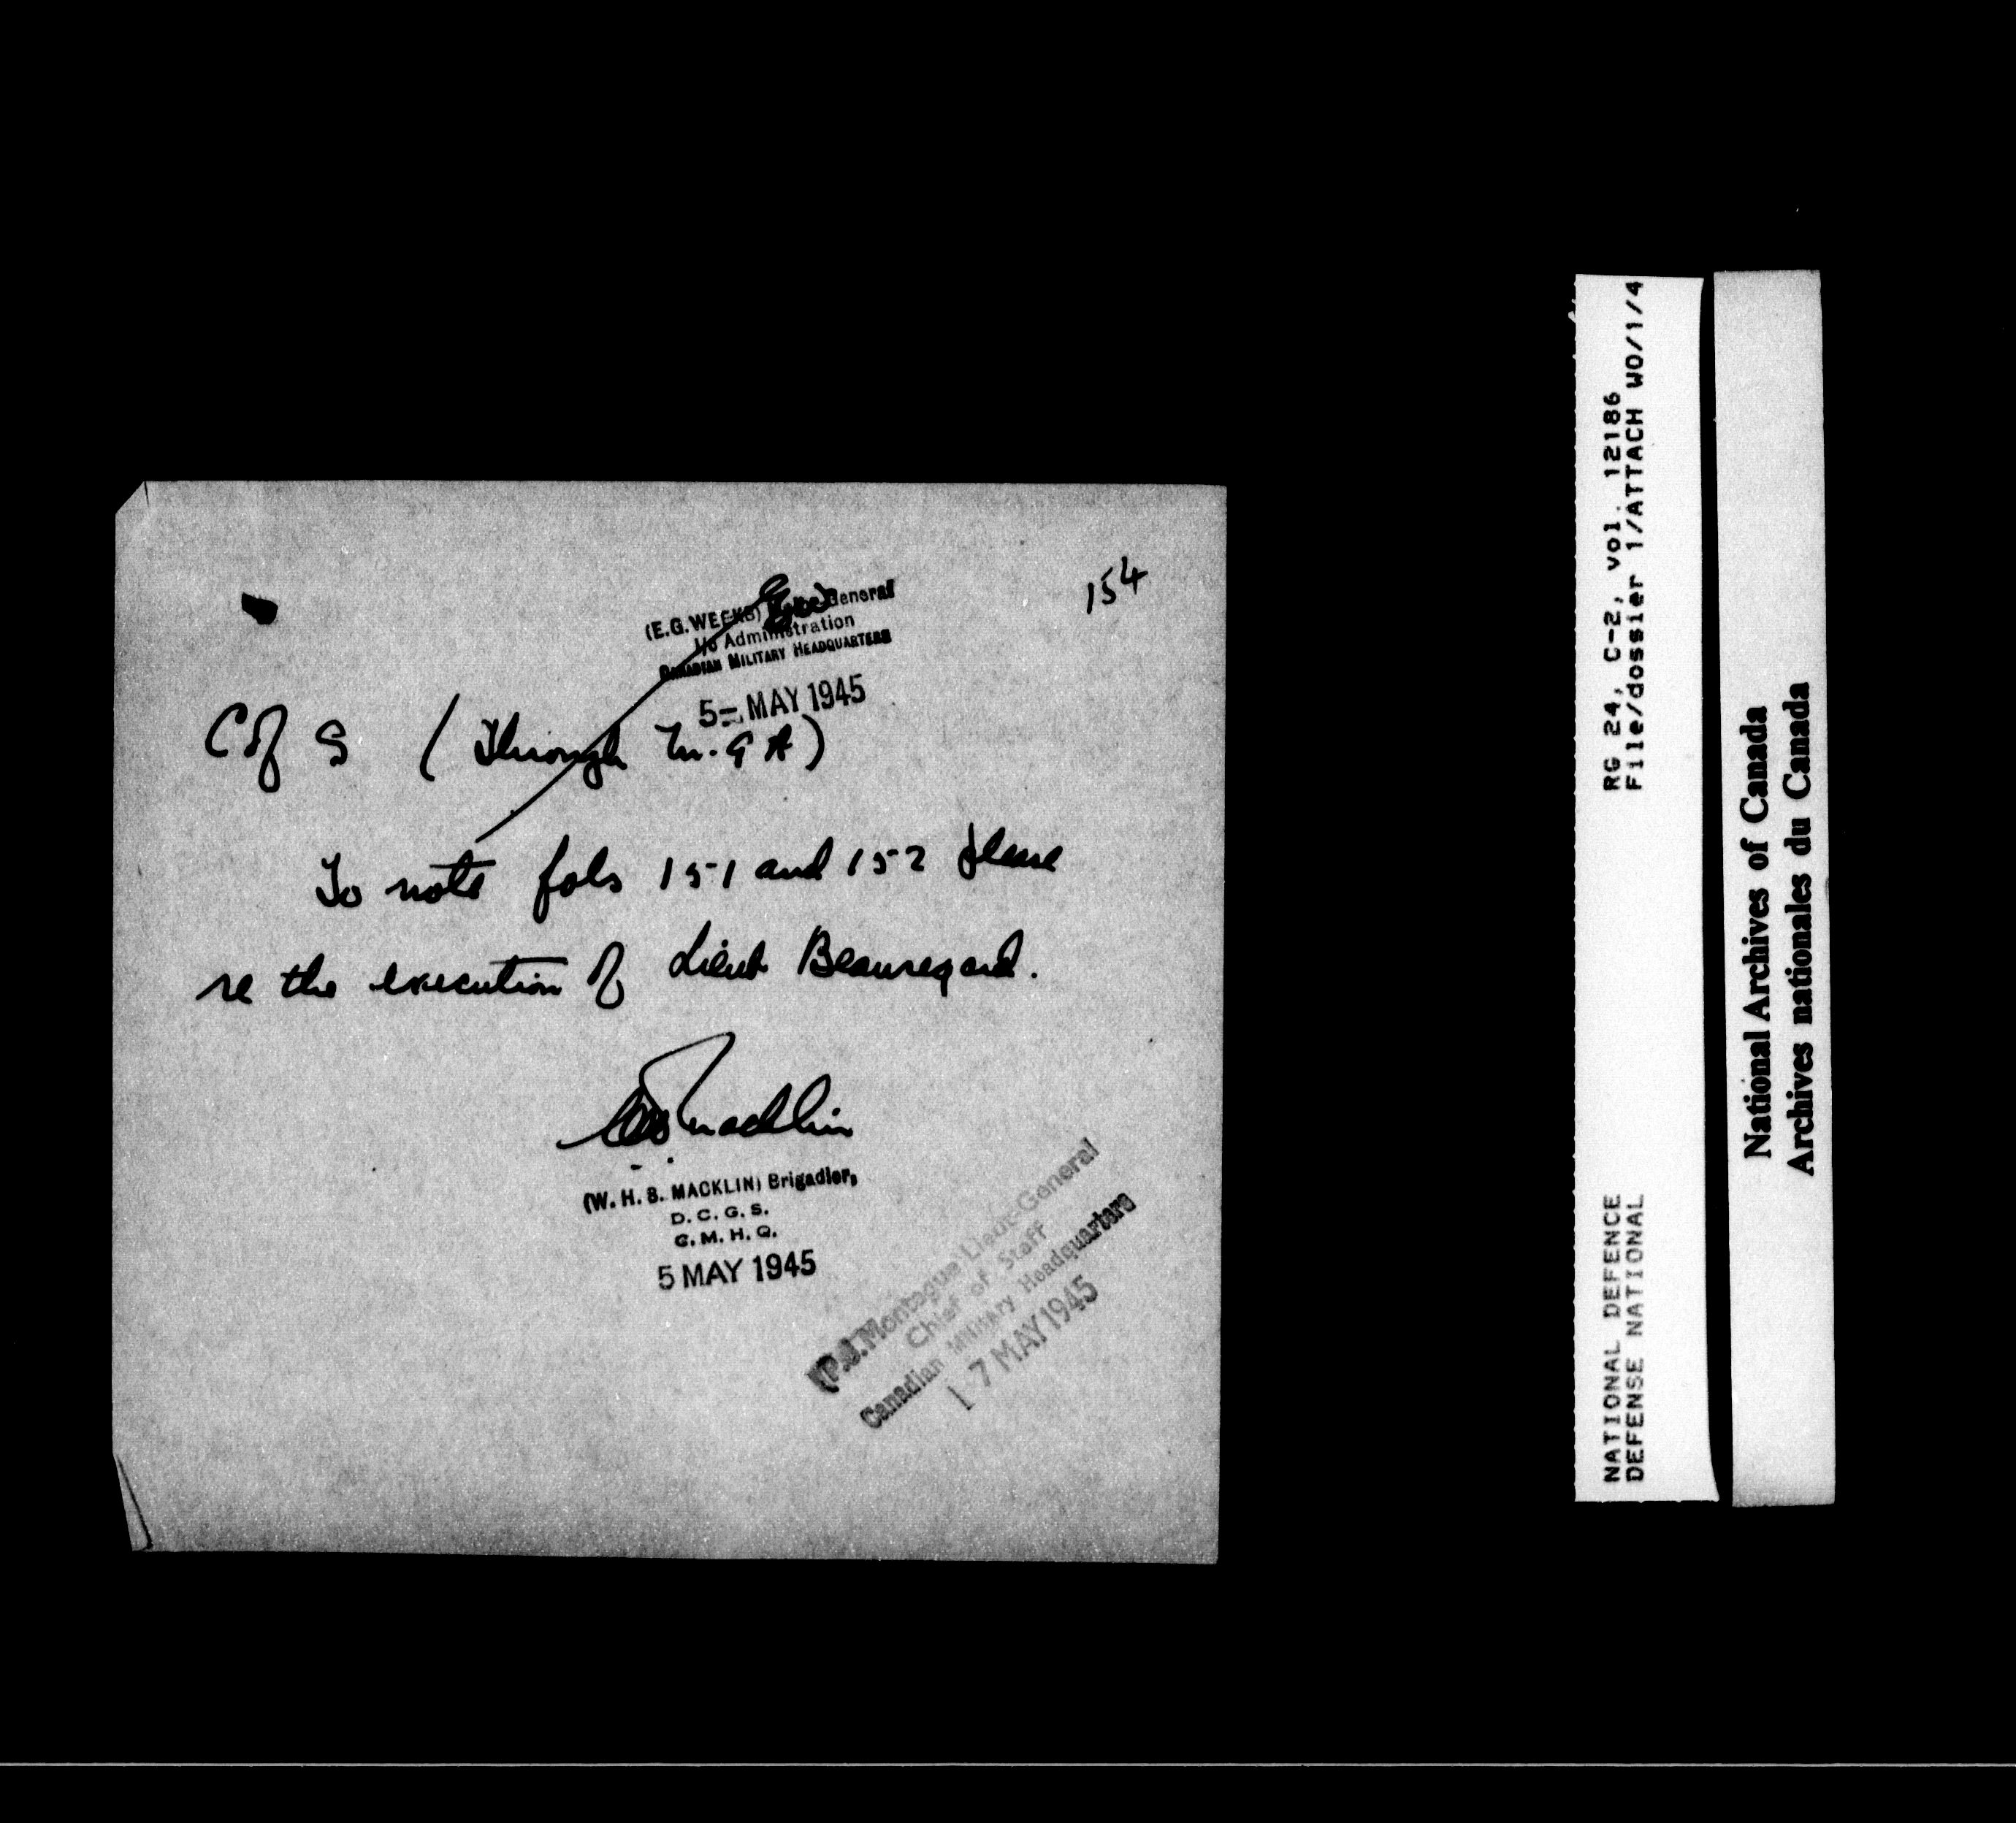 154
(E.G. WEEKS) Major General
i/c Administration
CANADIAN MILITARY HEADQUARTERS
5- MAY 1945
C of S (Through M.G A)
To note fols 151 and 152 please
re the execution of Lieut Beauregard.
WHSMacklin
(W. H. S. MACKLIN) Brigadier,
D. C. G. S.
C. M. H. Q.
5 MAY 1945
(P.J. Montague Lieut-General
Chief of Staff
Canadian Military Headquarters
17 MAY 1945
RG 24, C-2, vol. 12186
File/dossier 1/ATTACH WO/1/4
NATIONAL DEFENCE
DEFENSE NATIONAL
National Archives of Canada
Archives nationales du Canada